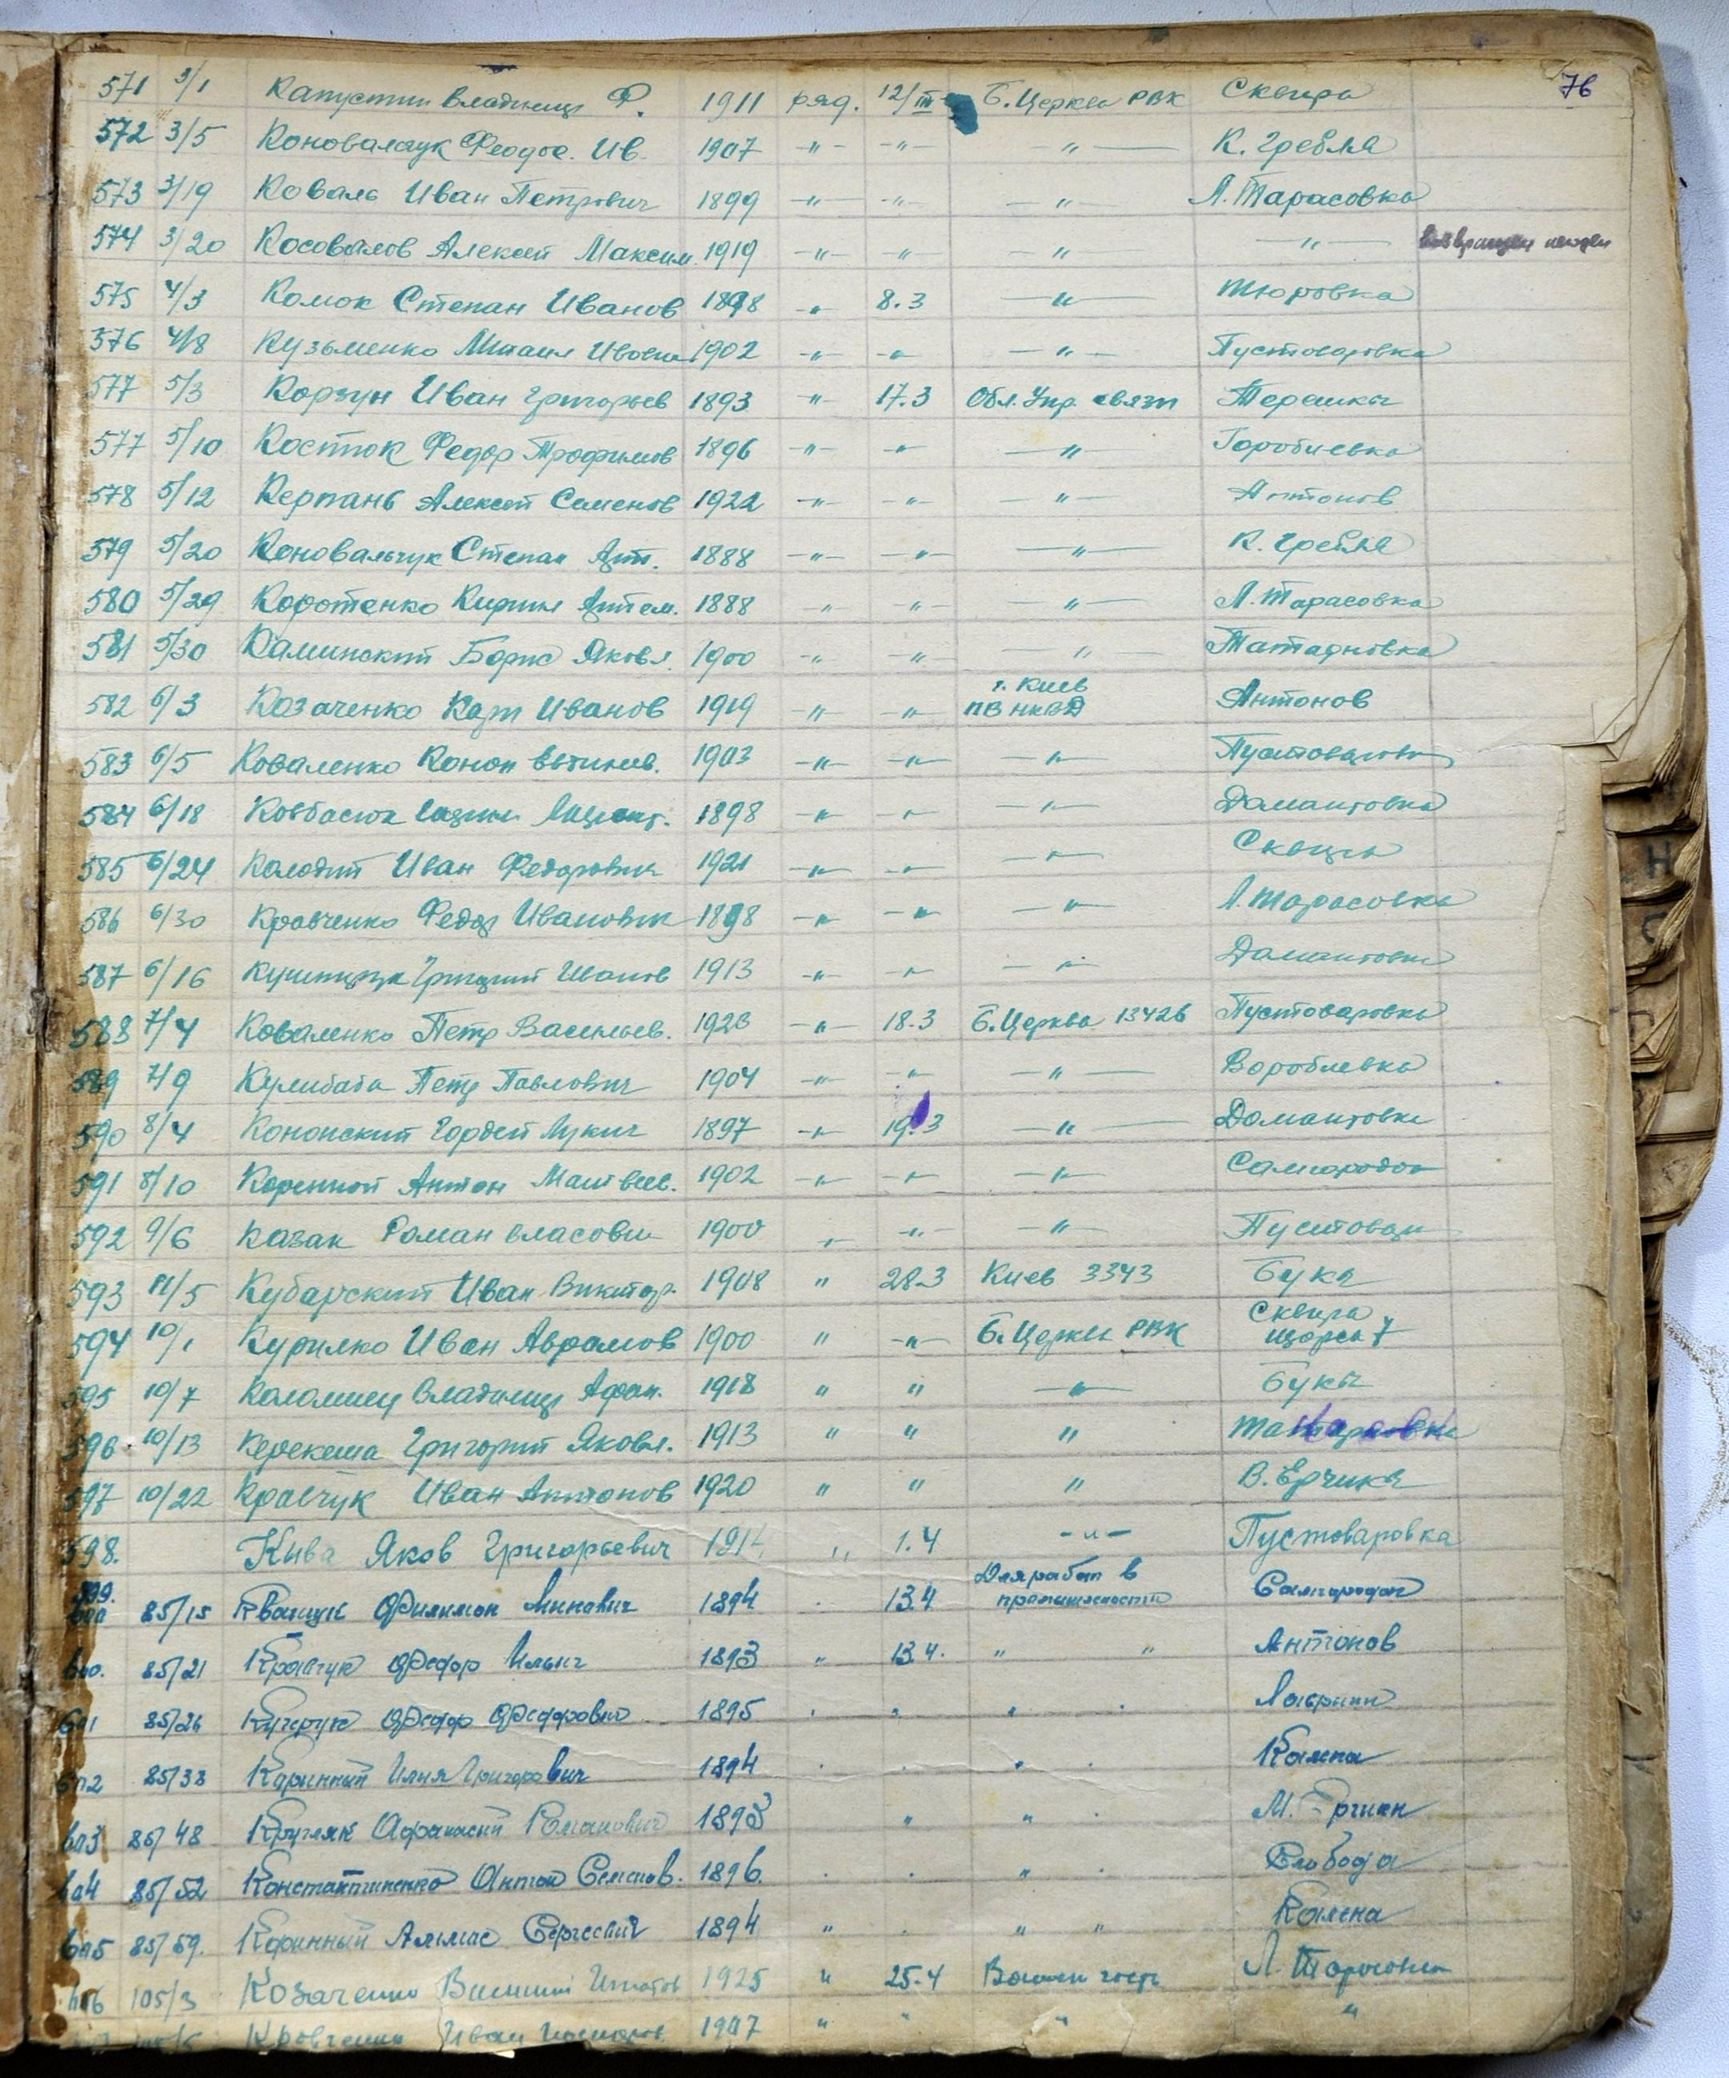 76
571 3/1 Капустин Владимир Ф. 1911 ряд. 12/III Б. Церква РВК Сквира
572 3/5 Коновалчук Феодос. Ив. 1907 -"- -"- -"- К. Гребля
573 3/19 Коваль Иван Петрович 1899 -"- -"- -"- Л. Тарасовка
574 3/20 Косовылов Алексей Максим. 1919 -"- -"- -"- -"- возвращен
575 4/3 Комок Степан Иванов 1898 " 8.3 -"- Тюровка
576 4/8 Кузьменко Михаил 1902 -"- -"- -"- Пустоваровка
577 5/3 Корзун Иван Григорьев 1893 -"- 17.3 Обл. Упр. связи Терешки
577 5/10 Косток Федор Трофимов 1896 -"- -"- -"- Горобиевка
578 5/12 Керпань Алексей Семенов 1922 -"- -"- -"- Антонов
579 5/20 Коновальчук Степан Арт. 1888 -"- -"- -"- К. Гребля
580 5/29 Коротенко Кирил Артем. 1888 " -"- -"- Л. Тарасовка
581 5/30 Каминский Борис Яковл. 1900 -"- -"- -"- Татариновка
г. Киев
582 6/3 Казаченко Карп Иванов 1919 -"- -"- ПВ НКВД Антонов
583 6/5 Коваленко Конон 1903 -"- -"- -"- Пустоваровка
584 6/18 Ковбасюк 1898 -"- -"- -"- Домантовка
585 6/24 Колодий Иван Федорович 1921 -"- -"- -"- Сквира
586 6/30 Кравченко Федор Иванович 1898 -"- -"- -"- Л. Тарасовка
587 6/16 Григорий Иванов 1913 -"- -"- -"- Домантовка
588 7/4 Коваленко Петр Васильев. 1923 -"- 18.3 Б. Церква 13426 Пустоваровка
589 7/9 Кулибаба Петр Павлович 1904 -"- -"- -"- Воробиевка
590 8/4 Кононский Гордей Лукич 1897 -"- 19.3 -"- Домантовка
591 8/10 Коренной Антон Матвеев. 1902 -"- -"- -"- Самгородок
592 9/6 Казак Роман Власович 1900 " -"- -"- Пустовар
593 11/5 Кубарский Иван Виктор. 1908 " 28.3 Киев 3343 Буки
Сквира
594 10/1 Курилко Иван Аврамов 1900 " -"- Б. Церква РВК Щорса 7
595 10/7 Коломиец Владимир Афан. 1918 " " -"- Буки
596 10/13 Керекеша Григорий Яковл. 1913 " " "
597 10/22 Кравчук Иван Антонов 1920 " " " В. Ерчики
598. Кива Яков Григорьевич 1914 " 1.4 -"- Пустоваровка
Для работ в
599. 85/15 Кващук Филимон Минович 1894 " 13.4 промышленности Самгородок
600. 85/21 Кравчук Федор Ильич 1893 " 13.4. " " Антонов
601 85/26 Кучерук Федор Федорович 1895 " " " " Лаврики
602 85/33 Каринный Илья Григорович 1894 " " " " Каленa
603 85/48 Кругляк Афанасий Романович 1893 " " " М. Ерчики
604 85/52 Константиненко Антон Семенов. 1896 " " " " Слобода
605 85/59. Коринный Сергеевич 1894 " " " " Калена
606 105/3 Козаченко 1925 " 25.4 Л. Тарасовка
Кровченко Иван 1907 " " " "